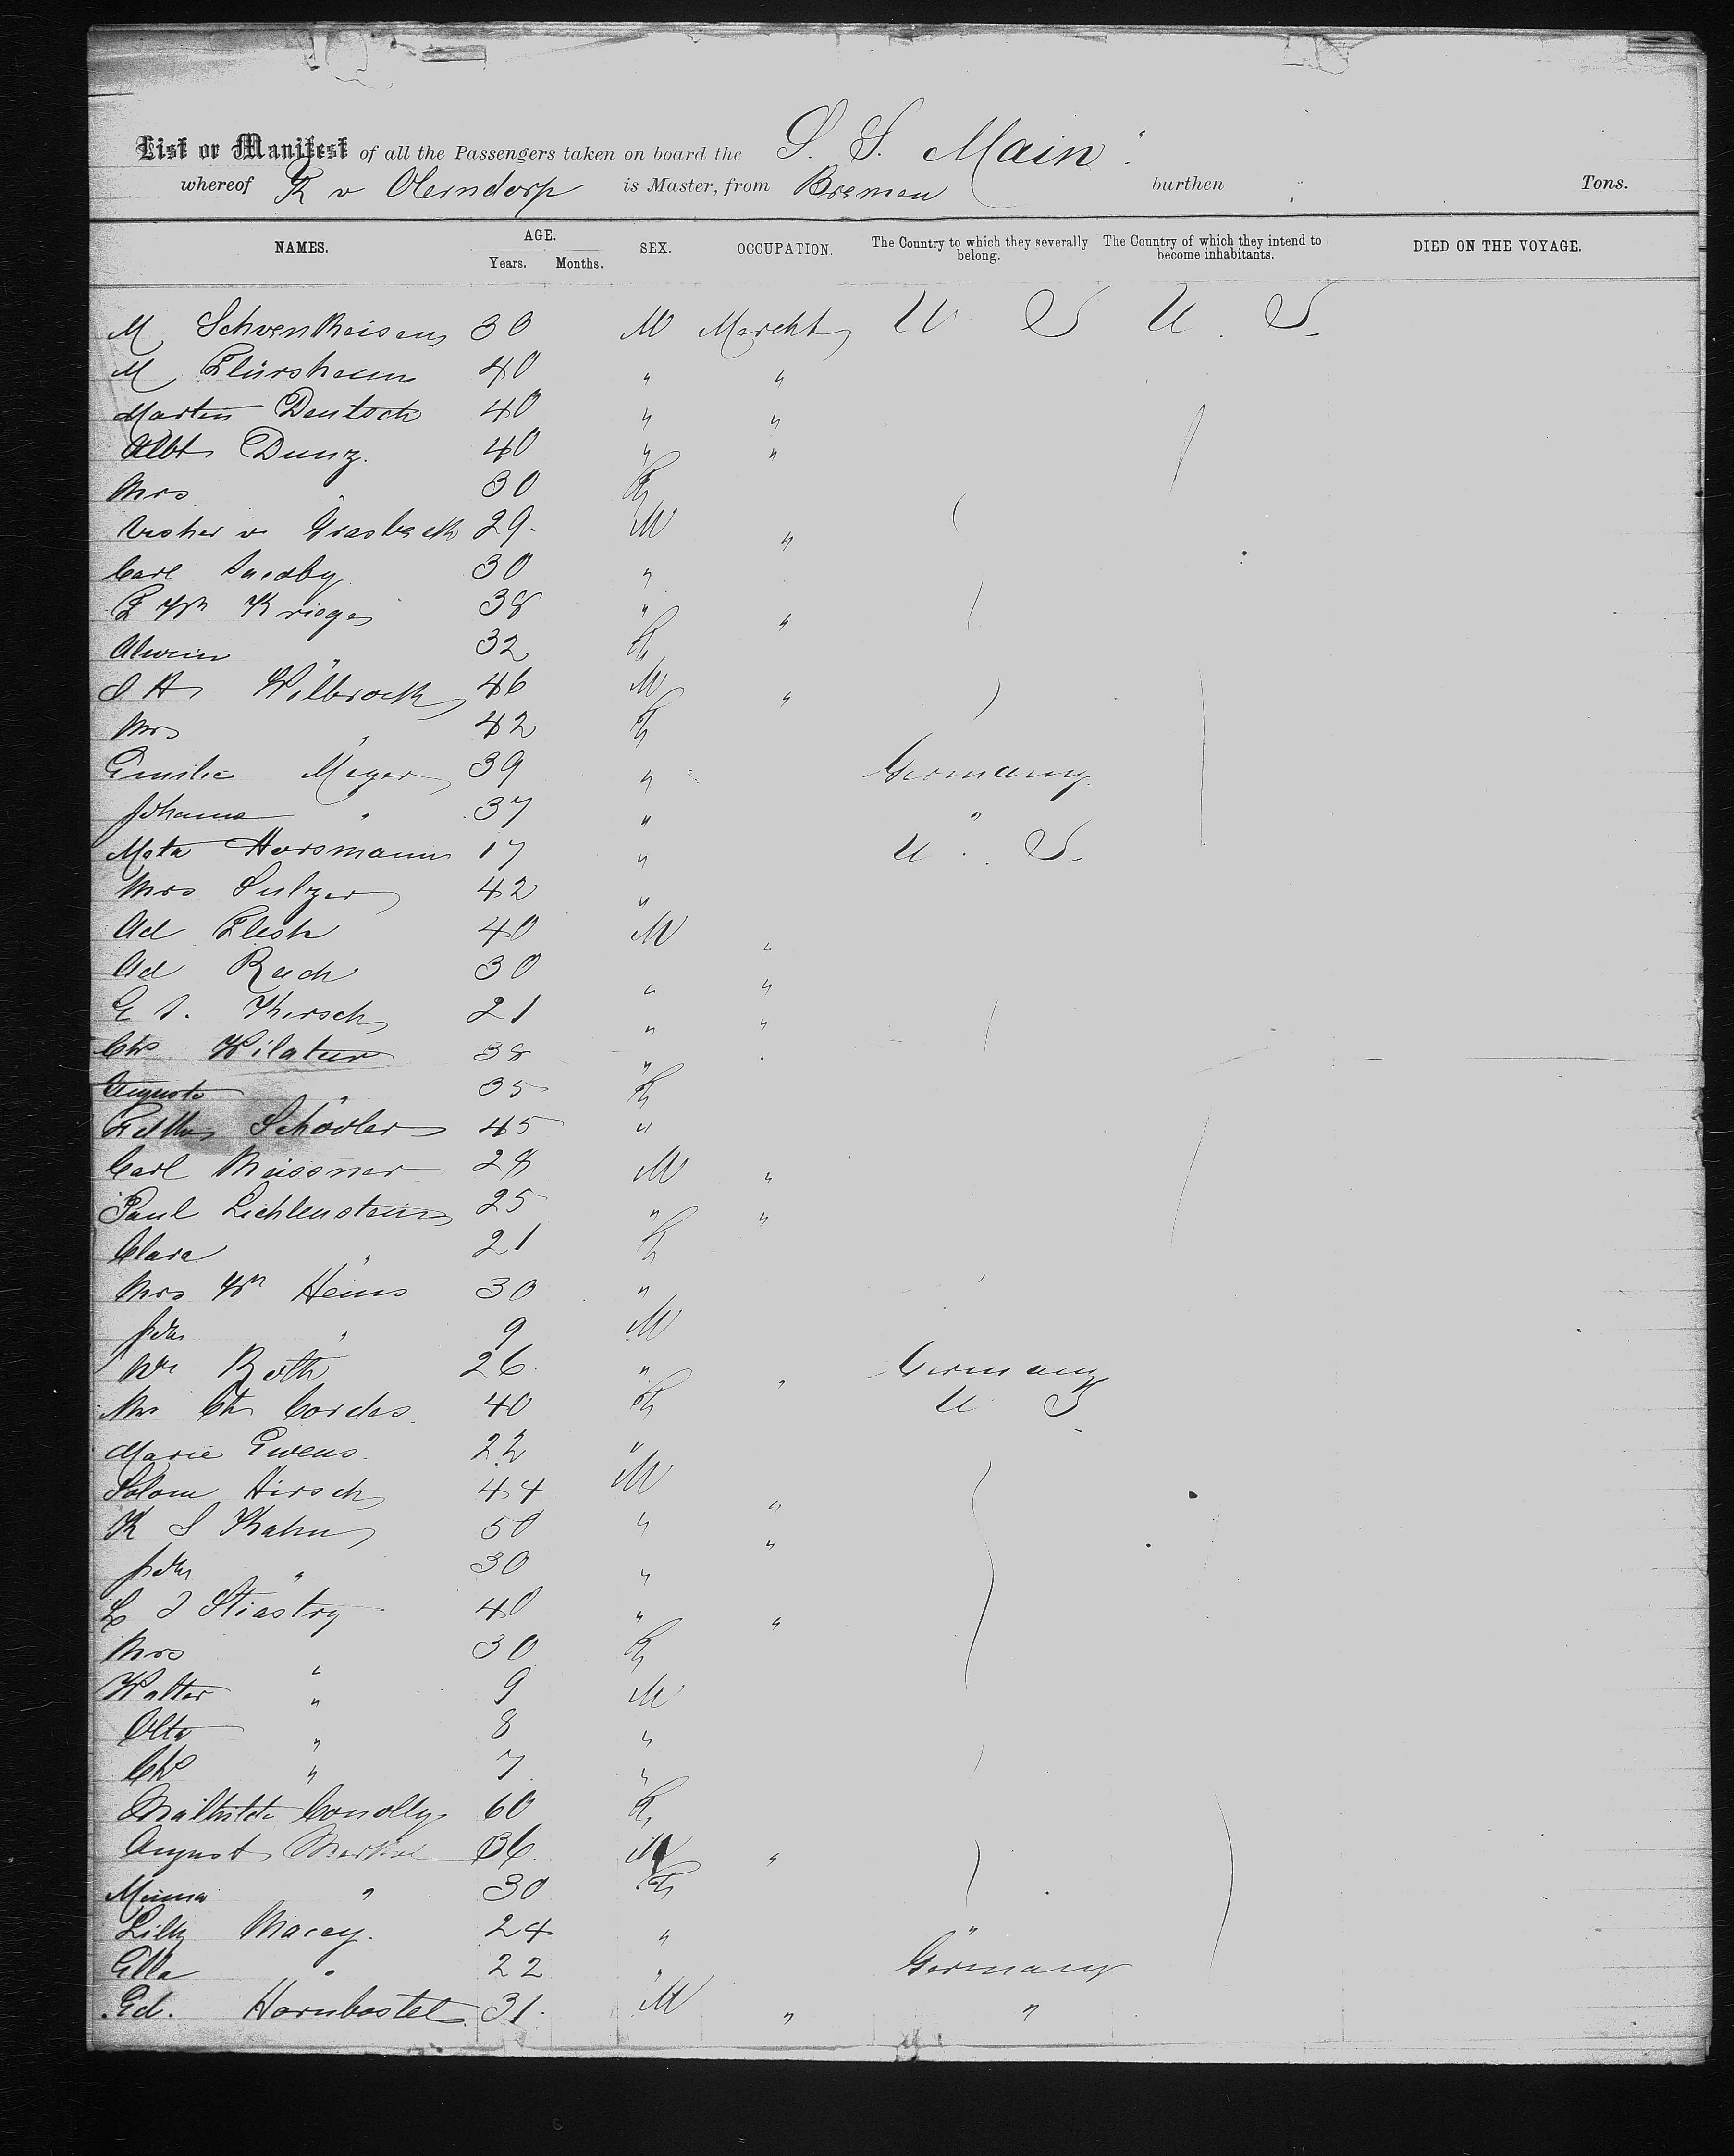 List or Manifest of all the Passengers taken on board the S. S. Main
whereof R v Olerndorp is Master, from Bremen burthen Tons.
NAMES. AGE. Years. Months. SEX. OCCUPATION. The Country to which they severally belong. The Country of which they intend to become inhabitants. DIED ON THE VOYAGE.
M 30 M Marcht U S U. S.
M Flürsheim 40 " "
Martin Deutsch 40 " "
Albt Dunz. 40 " "
Mrs " 30 F
v 29. M "
Carl 30 "
F Wm Krieger 38 " "
Alwin " 32 F
Wilbrock 46 M "
Mrs " 42 F
Emilie Meyer 39 " Germany
Johanna " 37 " "
Meta Horsmann 17 " U. S.
Mrs Sulzer 42 "
Ad Flesh 40 M "
Ad 30 " "
Hirsch 21 " "
Chs 38 "
Auguste " 35 F
Schödler 45 "
Carl Meissner 28 M "
Paul Lichtenstein 25 " "
Clara " 21 F
Mrs Wm Heins 30 "
Joh " 9 M
Wm Roth 26 " " Germany
Mrs Ch Cordes 40 F U S
Marie Ewens. 22 "
Solom Hirsch 44 M "
K S Kahn 50 " "
Joh " 30 "
Stiastny 40 " "
Mrs " 30 F
Walter " 9 M
Otto " 8 "
Chs " 7 "
Mathilde Conolly 60 F
August Merkel 36 M "
Minna " 30 F
Lilly Macey. 24 " "
Ella " 22 " Germany
Ed. Hornbostel 31. M " "